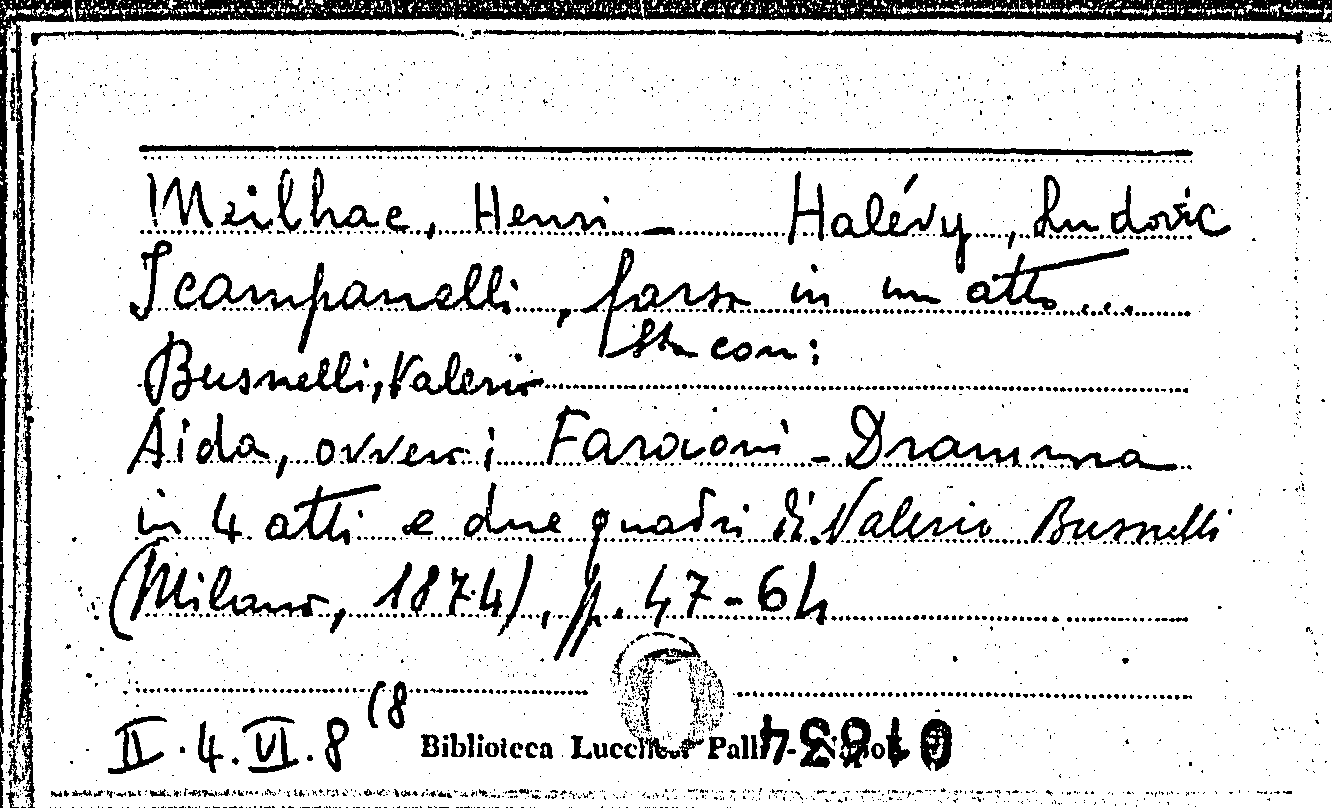 Meilhac, Henri - Halévy, Ludovic
I campanelli, farsa in un atto...
Sta con:
Busnelli, Valerio
Aida, ovvero i Faraoni - Dramma
in 4 atti e due quadri di Valerio Busnelli
(Milano, 1874), pp. 47-64
II.4.VI.8 (8
Biblioteca Lucchesi Palli - Napoli